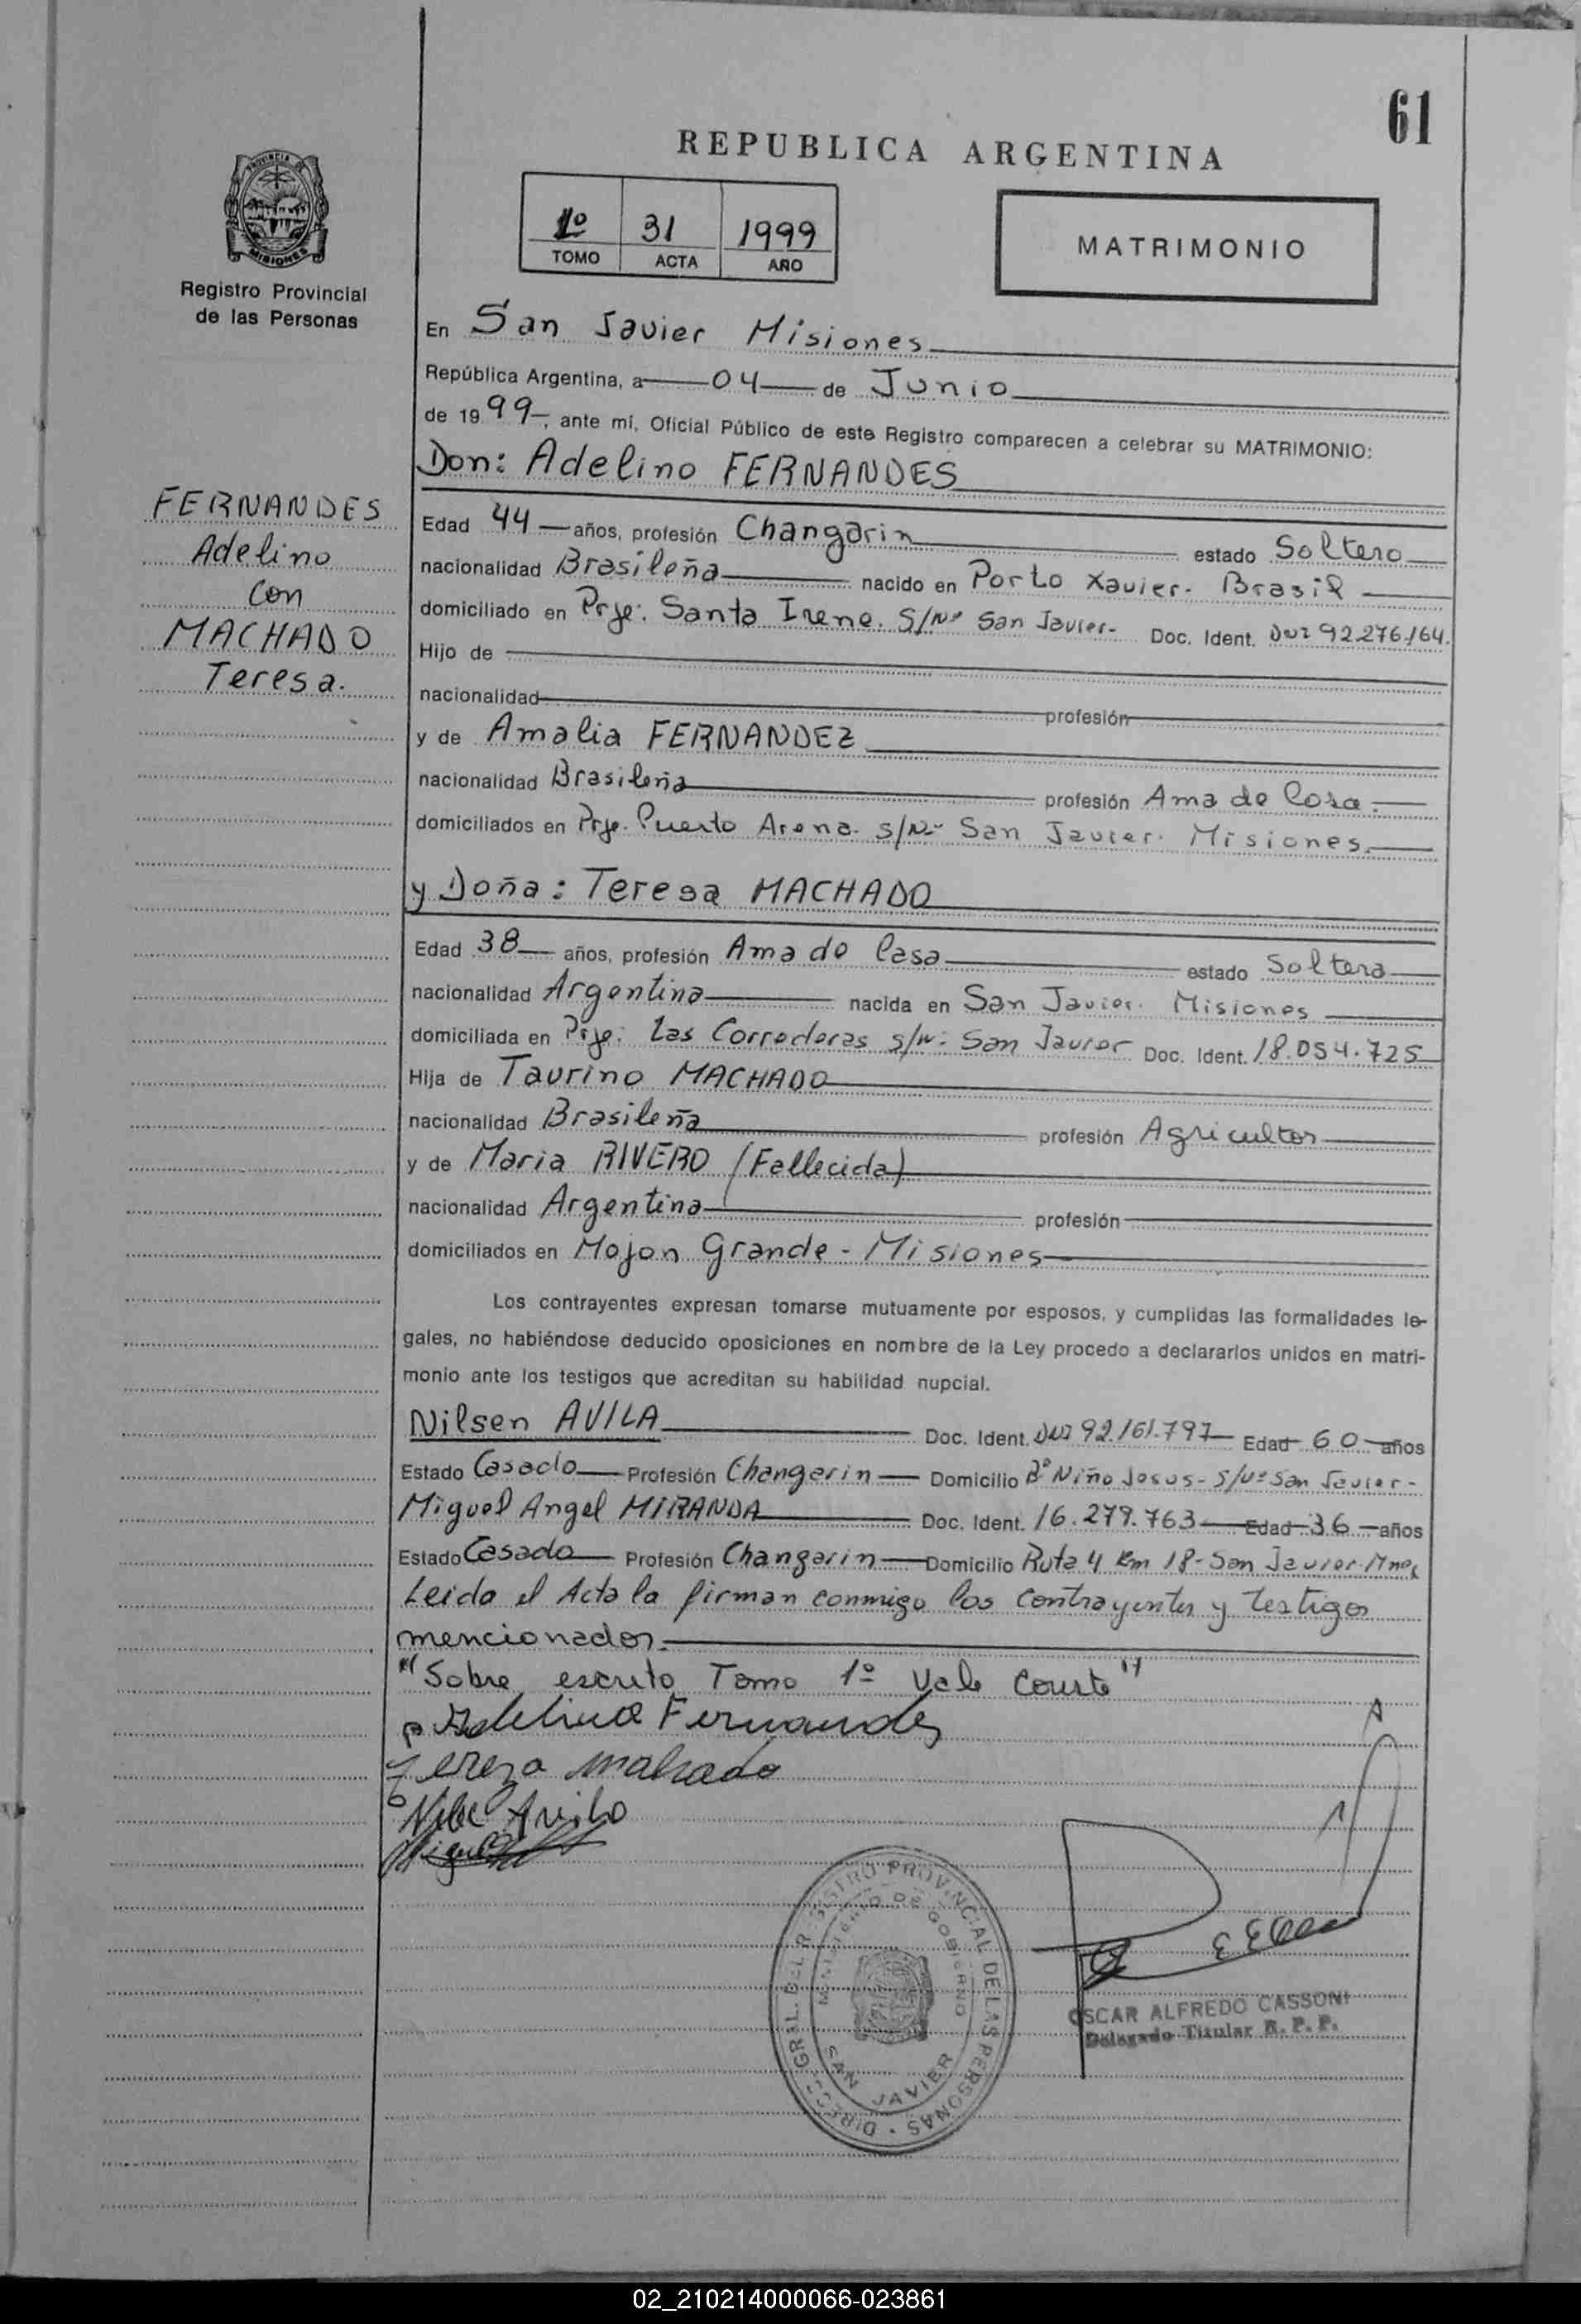 61
REPUBLICA ARGENTINA
1º 31 1999
TOMO ACTA AÑO
MATRIMONIO
PROVINCIA DE
MISIONES
Registro Provincial
de las Personas
En San Javier Misiones
República Argentina, a 04 de Junio
de 19 99, ante mí, Oficial Público de este Registro comparecen a celebrar su MATRIMONIO:
Don: Adelino FERNANDES
FERNANDES
Adelino
Con
MACHADO
Teresa.
Edad 44 años, profesión Changarin estado Soltero
nacionalidad Brasileña nacido en Porto Xavier - Brasil
domiciliado en Prje: Santa Irene. S/Nº San Javier- Doc. Ident. DNI 92.276.164.
Hijo de
nacionalidad profesión
y de Amalia FERNANDEZ
nacionalidad Brasileña profesión Ama de Casa.
domiciliados en Prje. Puerto Arena. S/Nº San Javier. Misiones.
y Doña: Teresa MACHADO
Edad 38 años, profesión Ama de Casa estado Soltera
nacionalidad Argentina nacida en San Javier. Misiones
domiciliada en Prje: Las Corredoras s/n: San Javier Doc. Ident. 18.054.725
Hija de Taurino MACHADO
nacionalidad Brasileña profesión Agricultor
y de Maria RIVERO (Fallecida)
nacionalidad Argentina profesión
domiciliados en Mojon Grande - Misiones
Los contrayentes expresan tomarse mutuamente por esposos, y cumplidas las formalidades le-
gales, no habiéndose deducido oposiciones en nombre de la Ley procedo a declararlos unidos en matri-
monio ante los testigos que acreditan su habilidad nupcial.
Nilsen AVILA Doc. Ident. DNI 92.161.797 Edad 60 años
Estado Casado Profesión Changarin Domicilio Bº Niño Jesus - S/Nº San Javier -
Miguel Angel MIRANDA Doc. Ident. 16.279.763 Edad 36 años
Estado Casado Profesión Changarin Domicilio Ruta 4 Km 18 - San Javier Mnes
Leida el Acta la firman conmigo los Contrayentes y testigos
mencionados.
"Sobre escrito Tomo 1º Vale Conste"
Adelino Fernandes
Tereza Malxado
Avila
Miguel
DIRECC. GRAL. DEL REGISTRO PROVINCIAL DE LAS PERSONAS
MINISTERIO DE GOBIERNO
SAN JAVIER
OSCAR ALFREDO CASSONI
Delegado Titular R. P. P.
02_210214000066-023861